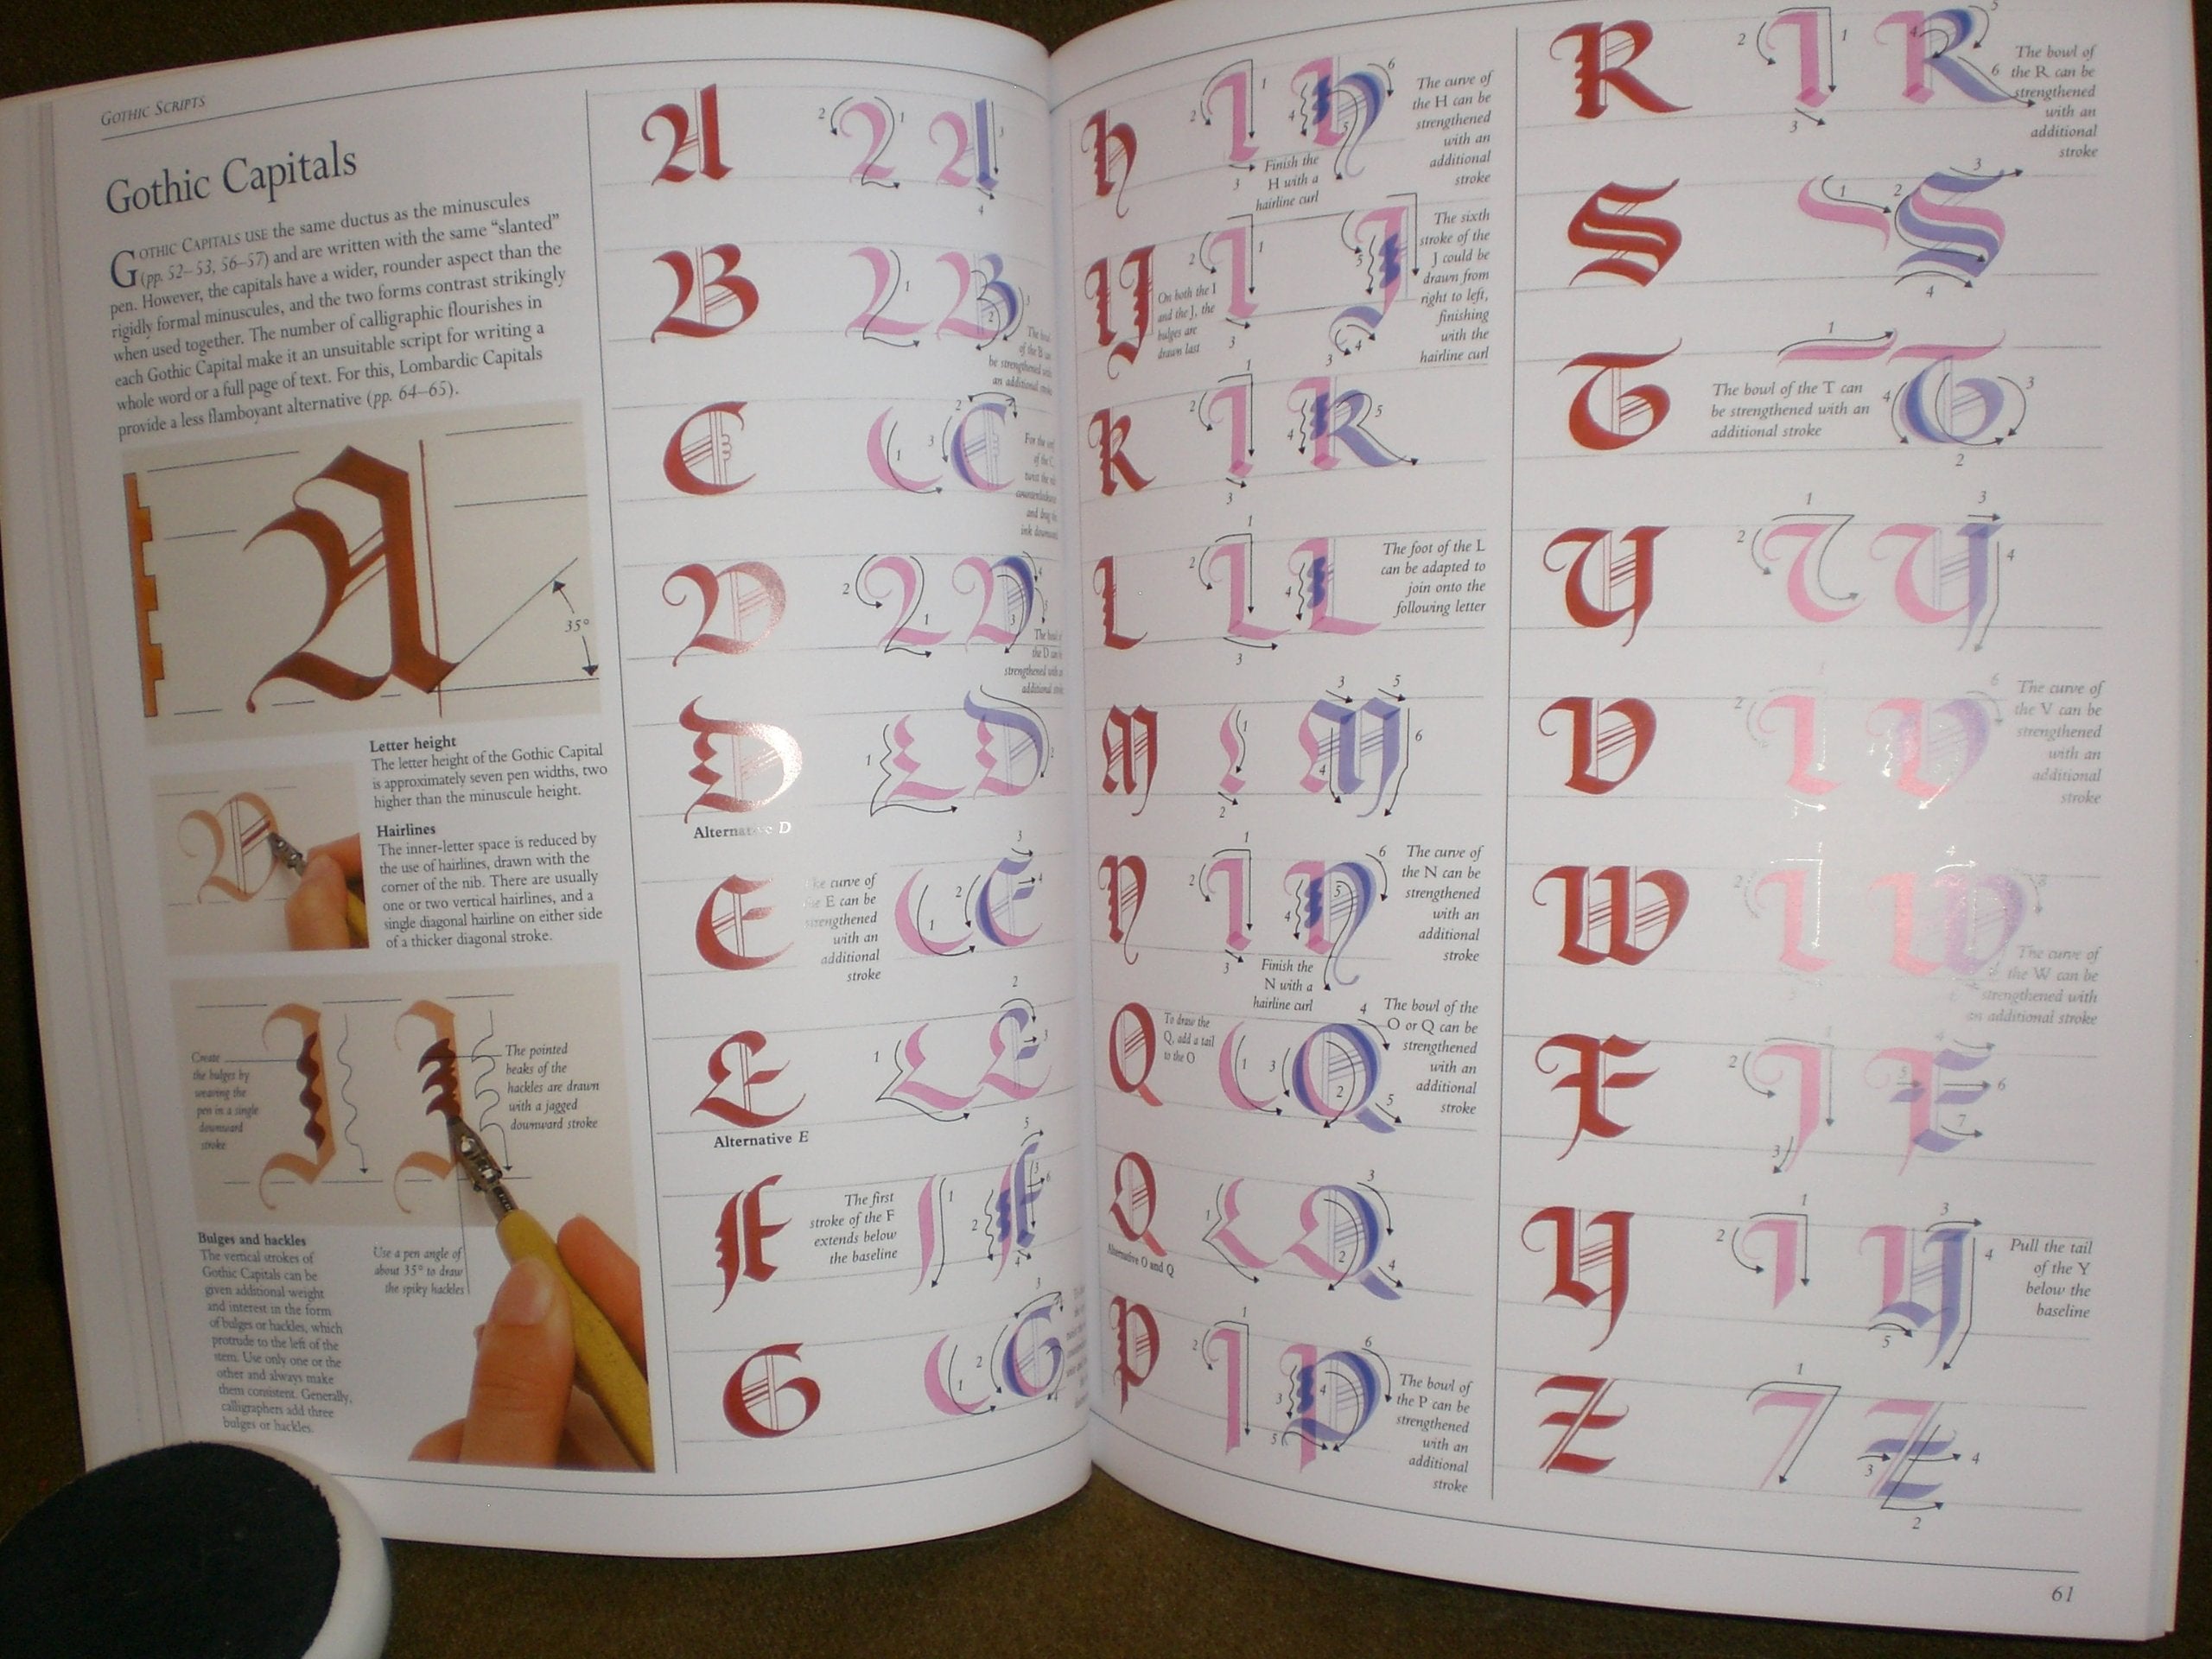 GOTHIC SCRIPTS
Gothic Capitals
GOTHIC CAPITALS USE the same ductus as the minuscules
(pp. 52–53, 56–57) and are written with the same “slanted”
pen. However, the capitals have a wider, rounder aspect than the
rigidly formal minuscules, and the two forms contrast strikingly
when used together. The number of calligraphic flourishes in
each Gothic Capital make it an unsuitable script for writing a
whole word or a full page of text. For this, Lombardic Capitals
provide a less flamboyant alternative (pp. 64–65).
A
35°
Letter height
The letter height of the Gothic Capital
is approximately seven pen widths, two
higher than the minuscule height.
Hairlines
The inner-letter space is reduced by
the use of hairlines, drawn with the
corner of the nib. There are usually
one or two vertical hairlines, and a
single diagonal hairline on either side
of a thicker diagonal stroke.
D
Create
the bulges by
weaving the
pen in a single
downward
stroke
I I
The pointed
beaks of the
hackles are drawn
with a jagged
downward stroke
Bulges and hackles
The vertical strokes of
Gothic Capitals can be
given additional weight
and interest in the form
of bulges or hackles, which
protrude to the left of the
stem. Use only one or the
other and always make
them consistent. Generally,
calligraphers add three
bulges or hackles.
Use a pen angle of
about 35° to draw
the spiky hackles
A 2 1 3 4
B 1 3 2
The bowl
of the B can
be strengthened with
an additional stroke
C 1 3 2
For the
of the C,
twist the nib
counterclockwise
and drag the
ink downward
D 2 1 3 4
The bowl of
the D can be
strengthened with an
additional stroke
D 1 2
Alternative D
E
The curve of
the E can be
strengthened
with an
additional
stroke
1 2 3 4
E 1 2 3
Alternative E
F
The first
stroke of the F
extends below
the baseline
1 2 3 4 5 6
G 1 2 3 4
H 2 1 3 4 5 6
Finish the
H with a
hairline curl
The curve of
the H can be
strengthened
with an
additional
stroke
IJ
On both the I
and the J, the
bulges are
drawn last
2 1 3 5 3 4
The sixth
stroke of the
J could be
drawn from
right to left,
finishing
with the
hairline curl
K 2 1 3 4 5
L 2 1 3 4
The foot of the L
can be adapted to
join onto the
following letter
M 1 2 3 4 5 6
N 2 1 3 4 5 6
Finish the
N with a
hairline curl
The curve of
the N can be
strengthened
with an
additional
stroke
Q
To draw the
Q, add a tail
to the O
1 3 2 4 5
The bowl of the
O or Q can be
strengthened
with an
additional
stroke
Q 1 2 3 4
Alternative O and Q
P 2 1 3 4 5 6
The bowl of
the P can be
strengthened
with an
additional
stroke
R 2 1 3 4 5 6
The bowl of
the R can be
strengthened
with an
additional
stroke
S 1 2 3 4
T
The bowl of the T can
be strengthened with an
additional stroke
1 4 3 2
U 2 1 3 4
V 2 6
The curve of
the V can be
strengthened
with an
additional
stroke
W 2 4
The curve of
the W can be
strengthened with
an additional stroke
X 2 1 3 4 5 6 7
Y 2 1 3 4 5
Pull the tail
of the Y
below the
baseline
Z 1 3 4 2
61